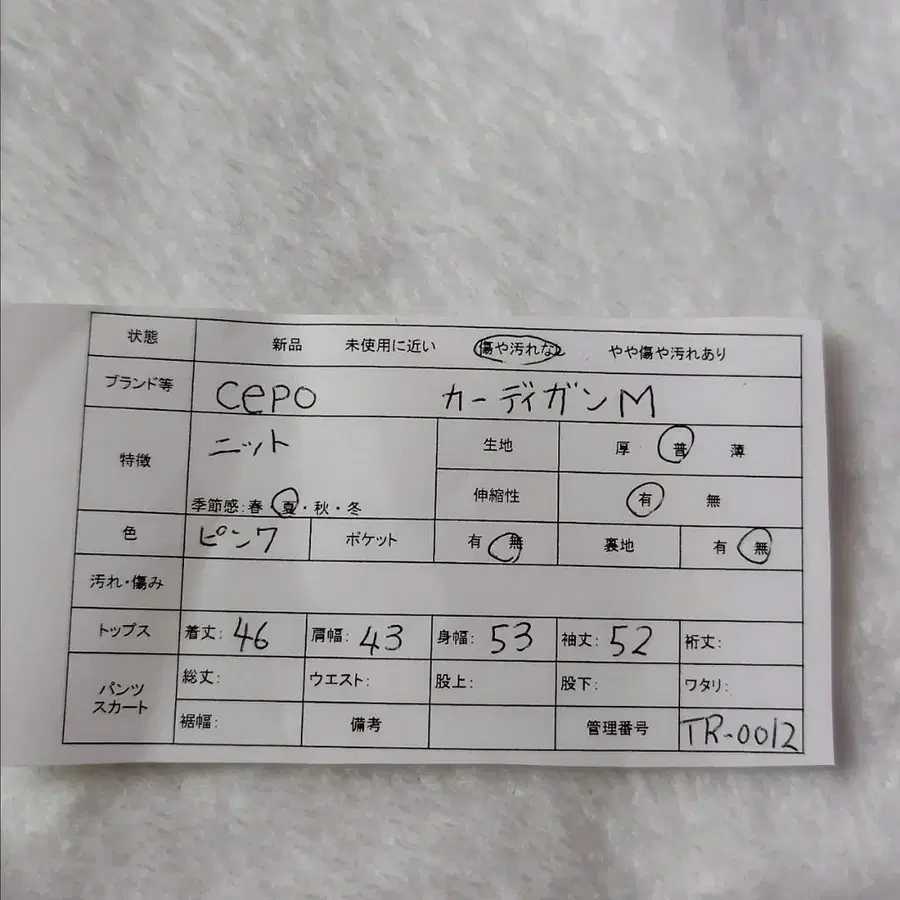 状態 新品 未使用に近い 傷や汚れなし やや傷や汚れあり
ブランド等 cepo カーディガンM
特徴 ニット 生地 厚 普 薄
季節感:春・夏・秋・冬 伸縮性 有 無
色 ピンク ポケット 有 無 裏地 有 無
汚れ・傷み
トップス 着丈: 46 肩幅: 43 身幅: 53 袖丈: 52 裄丈:
パンツ スカート 総丈: ウエスト: 股上: 股下: ワタリ:
裾幅: 備考 管理番号 TR-0012